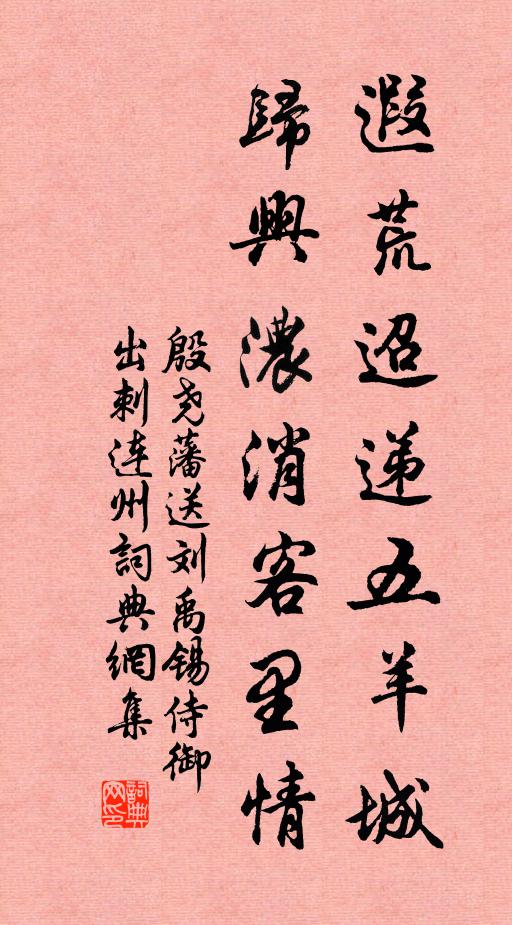 遐荒迢递五羊城
歸興濃消客里情
殷尧藩送刘禹锡侍御
出刺连州詞典網集
詞典网印